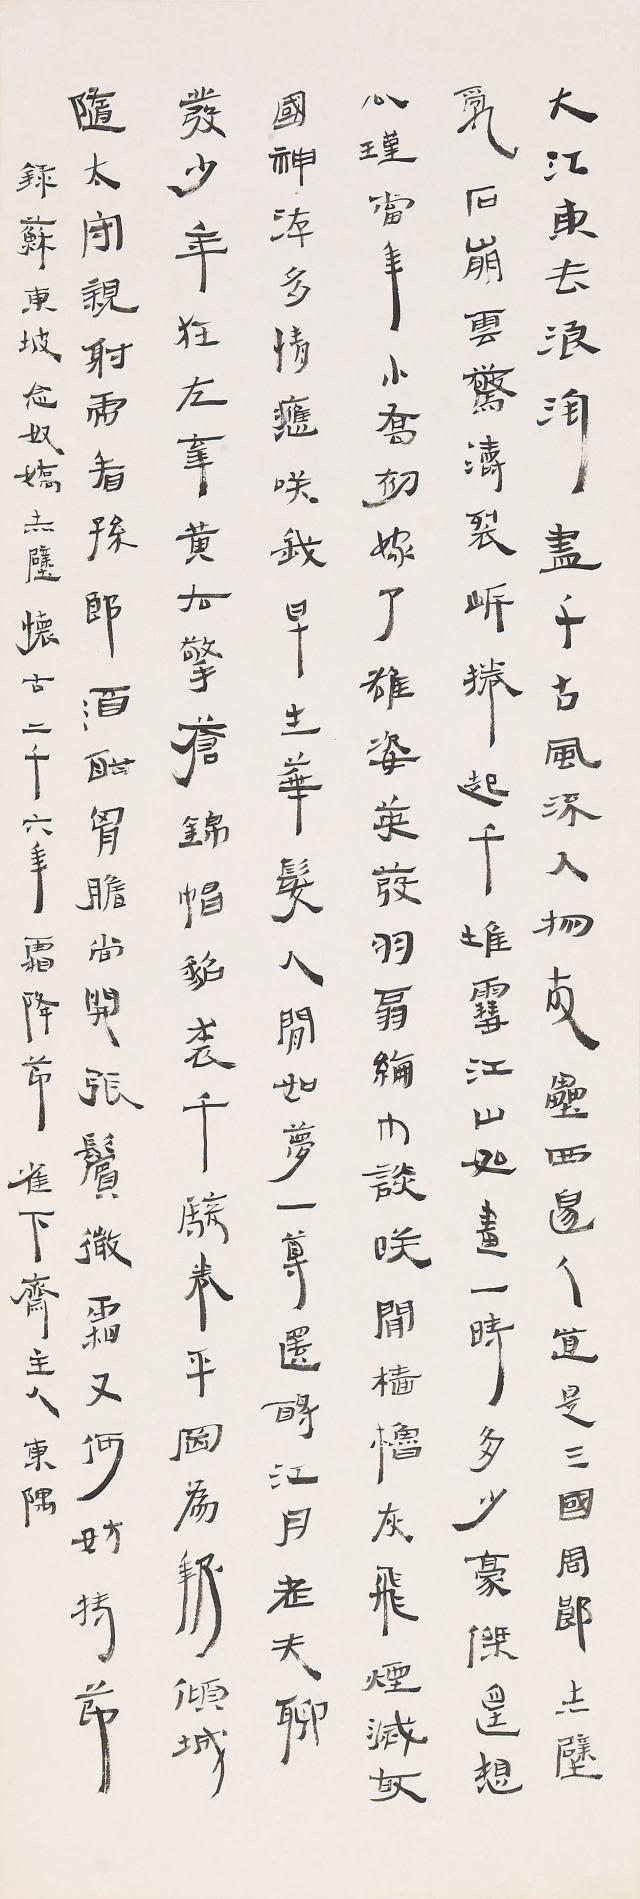 大江東去浪淘盡千古風流人物故壘西邊人道是三國周郎赤壁
亂石崩雲驚濤裂岸捲起千堆雪江山如畫一時多少豪傑遥想
公瑾當年小喬初嫁了雄姿英發羽扇綸巾談咲間檣櫓灰飛煙滅故
國神遊多情應咲我早生華髮人間如夢一尊還酹江月老夫聊
發少年狂左牽黄右擎蒼錦帽貂裘千騎卷平岡為報傾城
隨太守親射虎看孫郎酒酣胷膽尚開張鬢微霜又何妨持節
録蘇東坡念奴嬌赤壁懷古二千六年霜降節雀下齋主人東隅